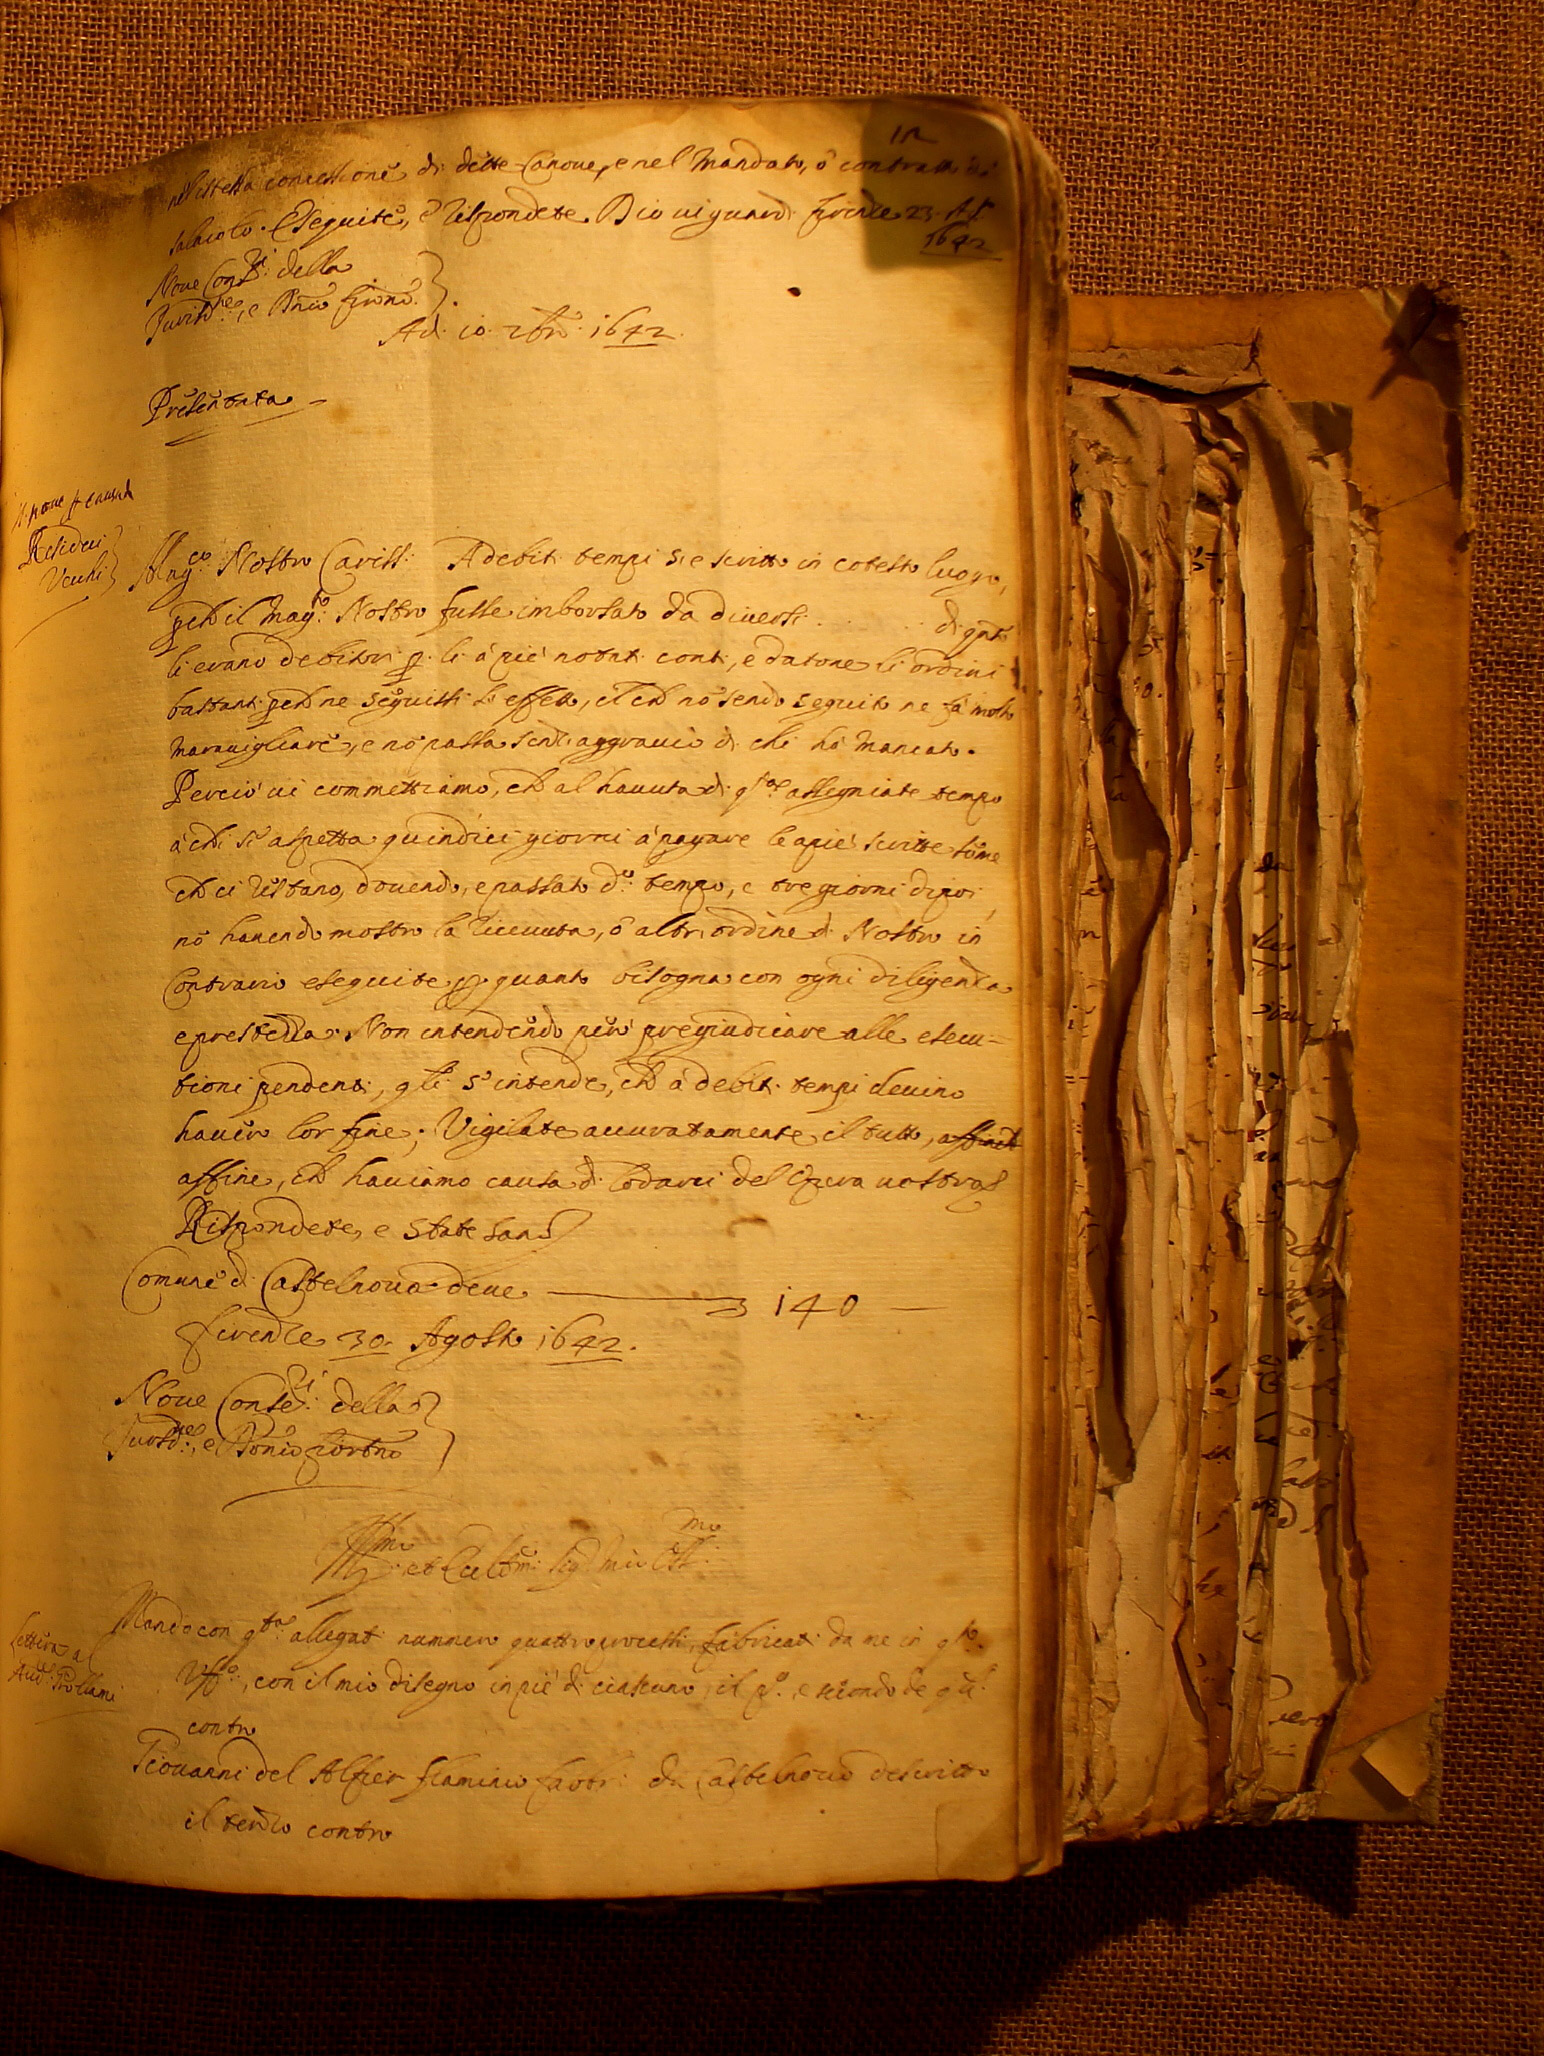 nell'istessa concessione di dette Canove, e nel Mandato, ò contratto di
salaiolo. Eseguite, e rispondete. Dio vi guardi firenze 23 Ag.
1642
Nove Con.ri della
Jurisd.ne, e Dnio fiorno.
Ad. 10. 7bre. 1642.
Presentata
Residui
Vecchi
Mag.co Nostro Cariss. A debiti tempi si e scritto in cotesto luogo,
perch il Mag.to Nostro fusse imborsato da diversi di q.nto
li erano debitori p. li à piè notati conti, e datone li ordini
bastanti perch ne seguissi lo effetto, il ch nō sendo seguito ne fà molto
maravigliare, e nō passa senza aggravio di chi hà mancato.
Perciò vi commettiamo, ch al havuta di q.sta assegniate tempo
à chi s'aspetta quindici giorni à pagare le apiè scritte sōme
ch ci restano, dovendo, e passato d.o tempo, e tre giorni dipoi,
nō havendo mostro la ricevuta, ò altri ordine di Nostro in
Contrario eseguite p quanto bisogna con ogni diligenza
e prestezza. Non intendendo però pregiudicare alle esecu=
tioni pendenti, q.li s'intende, ch à debiti tempi devino
haver lor fine; Vigilate accuratamente il tutto, affinch
affine, ch haviamo causa di lodarci del opera vostra
Rispondete, e state sano
Comune di Castelnovo deve 140
firenze 30. Agosto 1642.
Nove Conse.ri della
Jurisd.ne, e Domio fiortno
Ill.mo et Ecc.mo Sig. mio Oss.mo
Lettera al
Aud.
Mando con q.sta allegati nummero quattro processi, fabricati da me in q.sto
Uff.o, con il mio disegno in piè di ciascuno, il p.o, e secondo de q.li
contro
Giovanni del Alfier flaminio fabri da Castelnovo descritto
il terzo contro